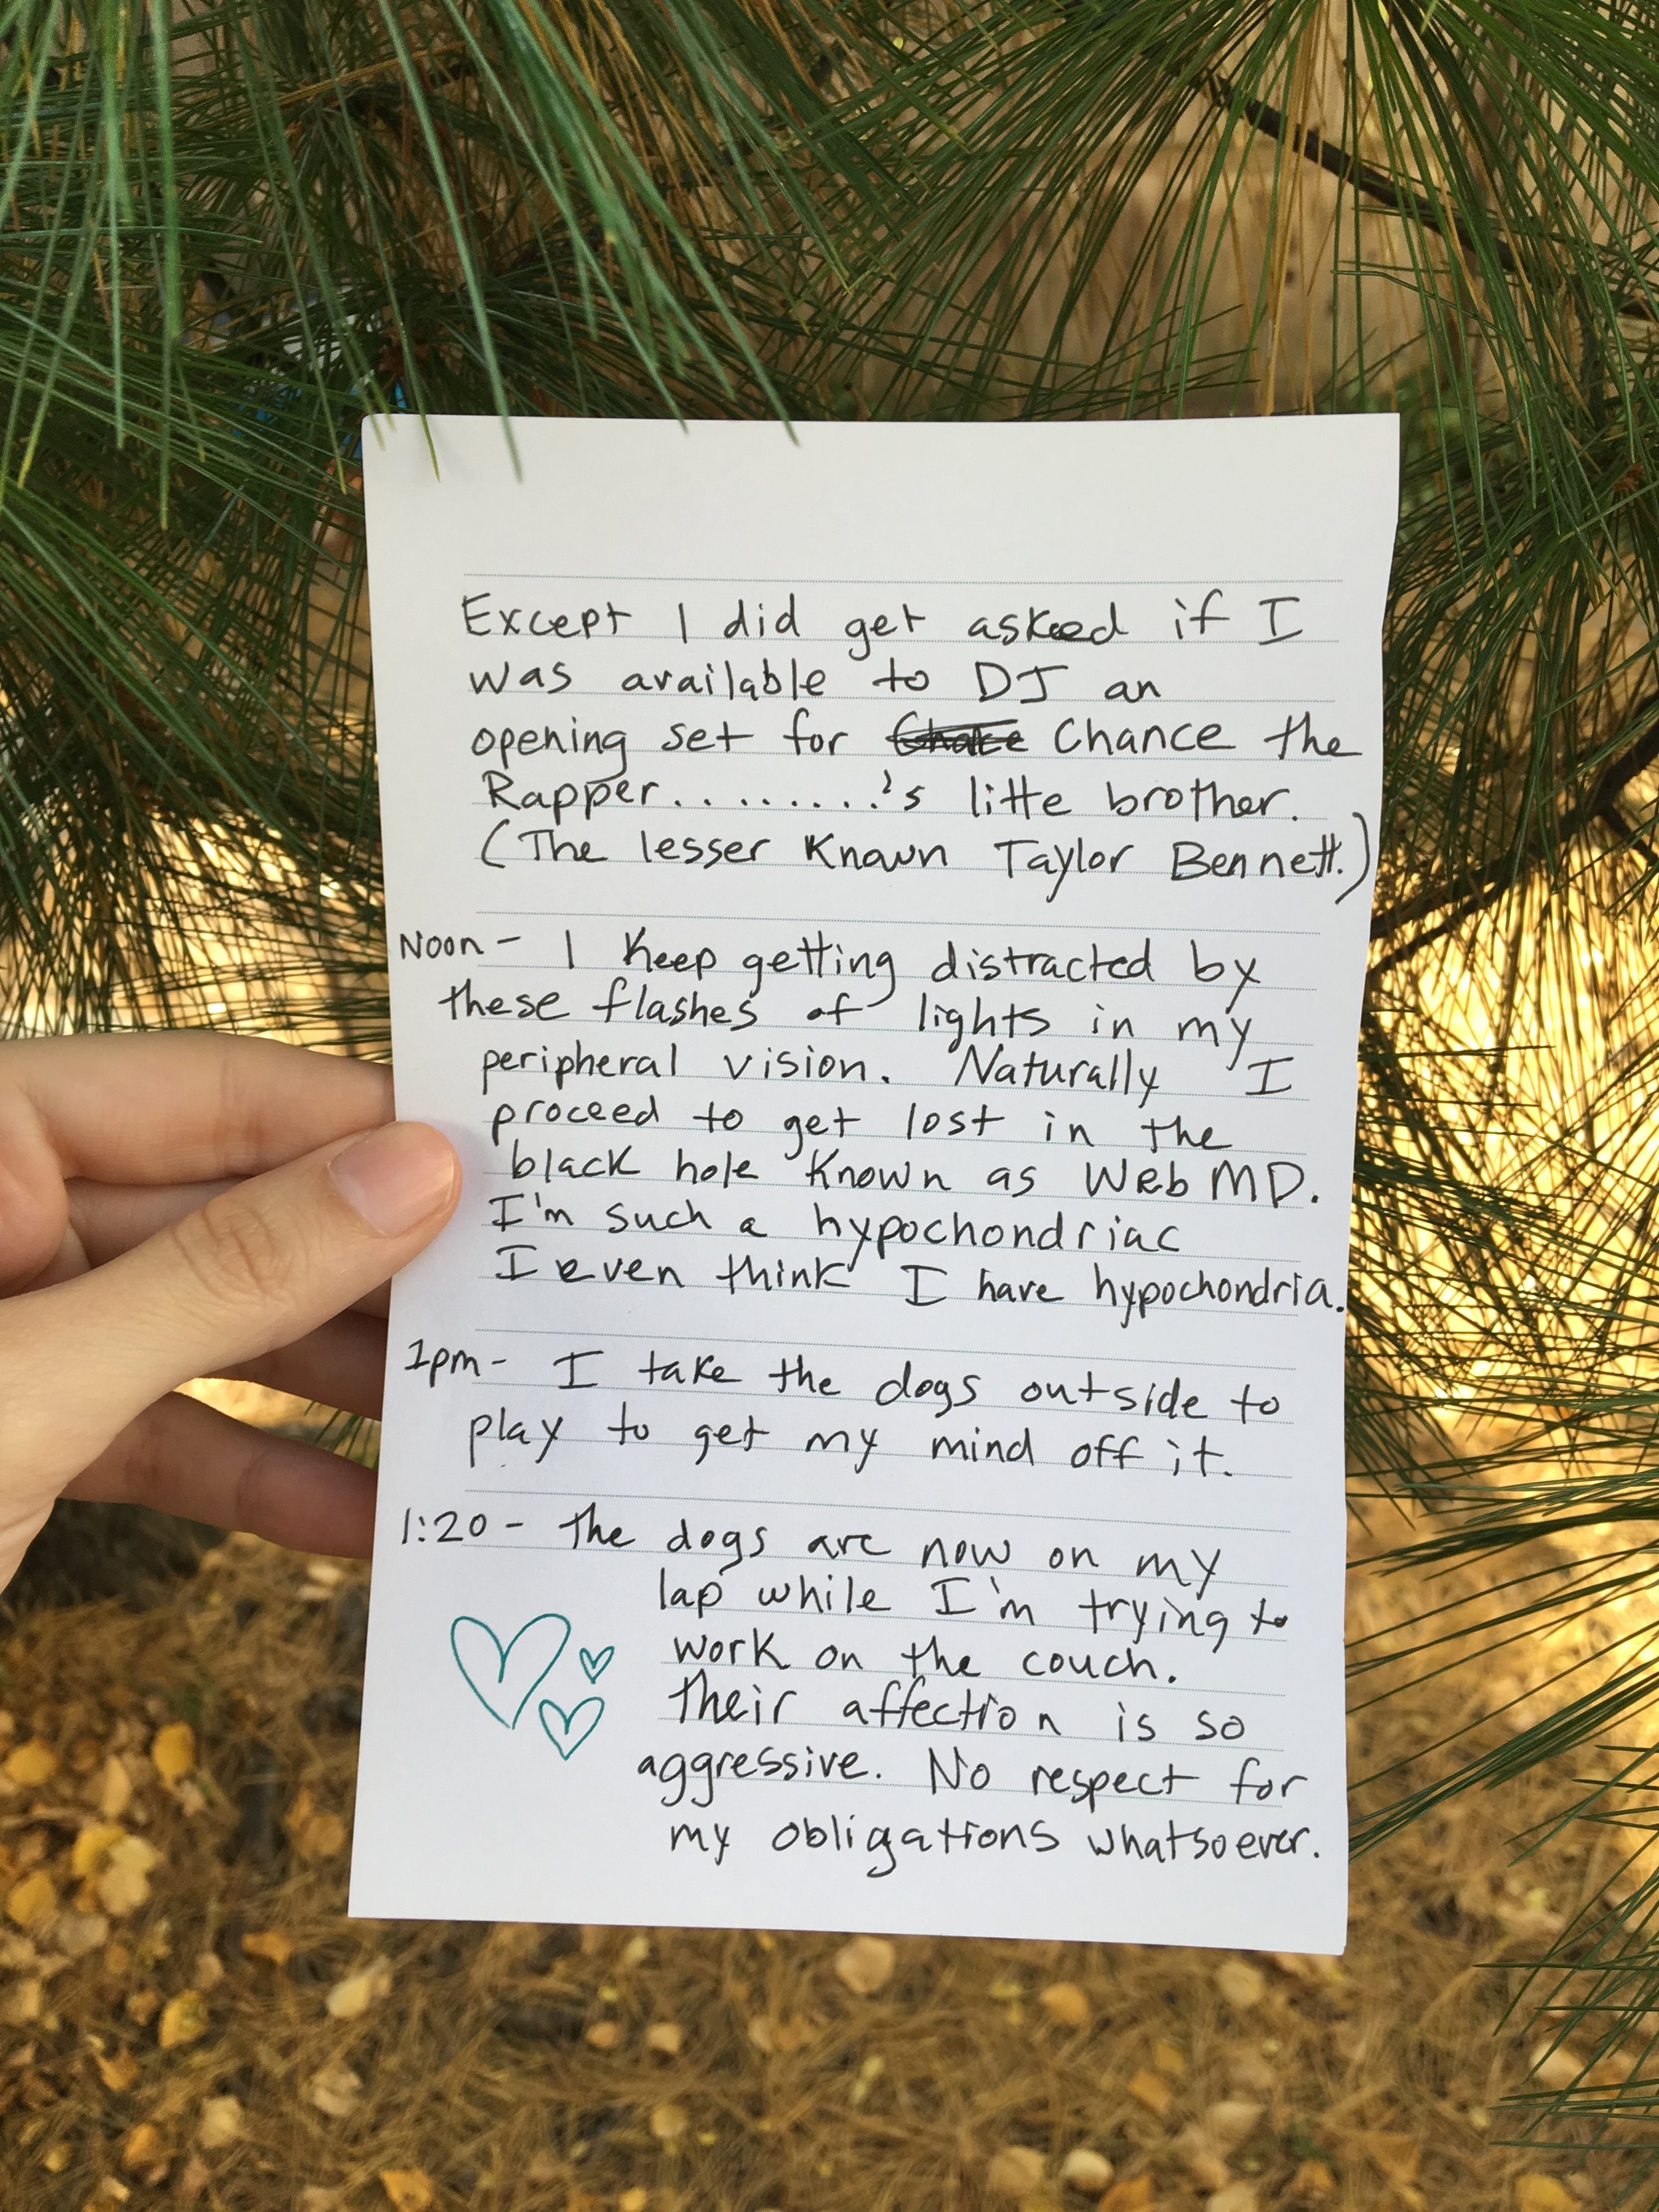 Except I did get asked if I
was available to DJ an
opening set for Chance the
Rapper.........'s little brother.
(The lesser known Taylor Bennett.)
Noon - I keep getting distracted by
these flashes of lights in my
peripheral vision. Naturally I
proceed to get lost in the
black hole known as WebMD.
I'm such a hypochondriac
I even think I have hypochondria.
1pm - I take the dogs outside to
play to get my mind off it.
1:20 - The dogs are now on my
lap while I'm trying to
work on the couch.
Their affection is so
aggressive. No respect for
my obligations whatsoever.